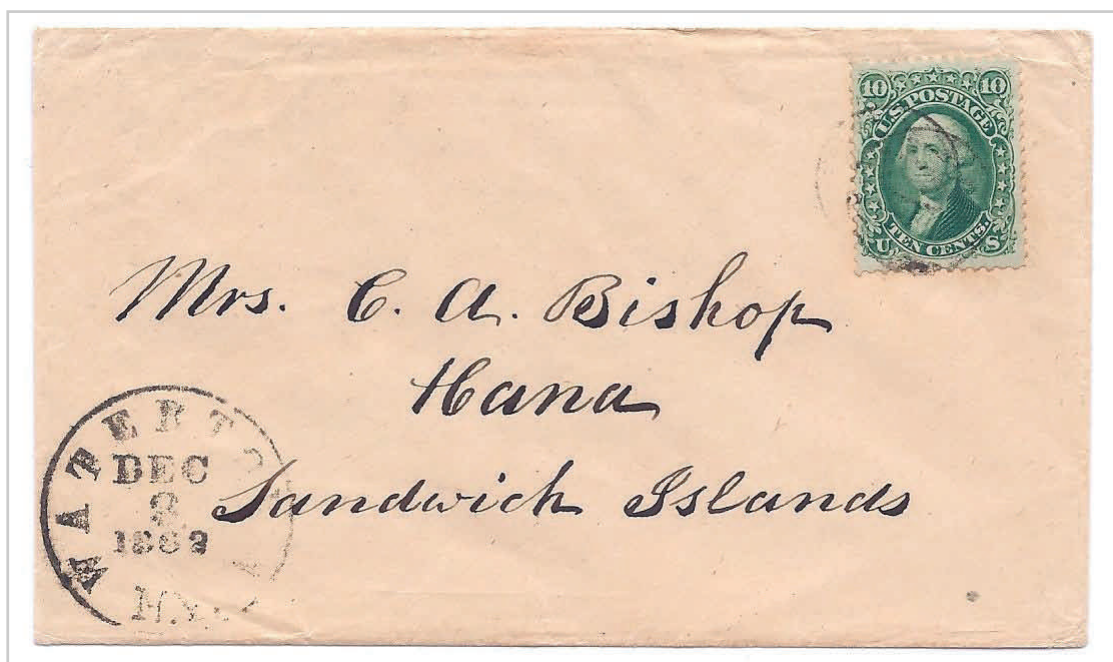 10 10
U.S. POSTAGE
TEN CENTS.
U S
Mrs. C. A. Bishop
Hana
Sandwich Islands
DEC
2
1862
N.Y.